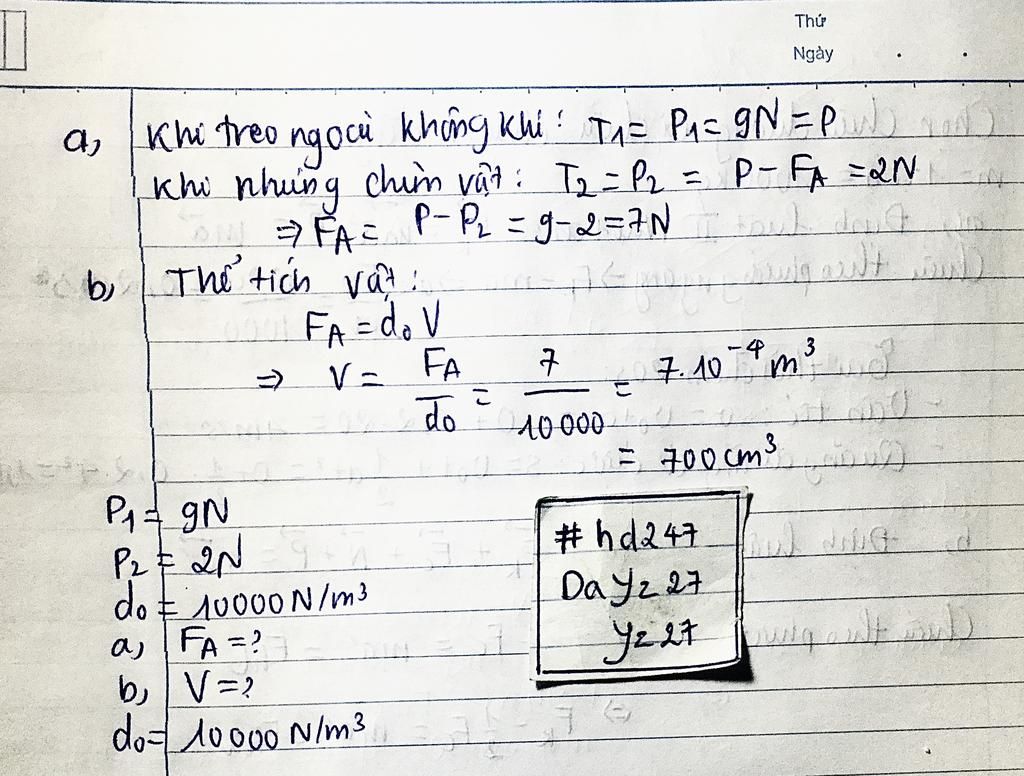 Thứ
Ngày
a, Khi treo ngoài không khí: T₁ = P₁ = 9N = P
Khi nhúng chìm vật: T₂ = P₂ = P - F_A = 2N
⇒ F_A = P - P₂ = 9 - 2 = 7N
b, Thể tích vật:
F_A = d₀ V
⇒ V = F_A / d₀ = 7 / 10000 = 7.10⁻⁴ m³
= 700 cm³
P₁ = 9N
P₂ = 2N
d₀ = 10000 N/m³
a, F_A = ?
b, V = ?
d₀ = 10000 N/m³
# hd247
Da yz 27
yz 27